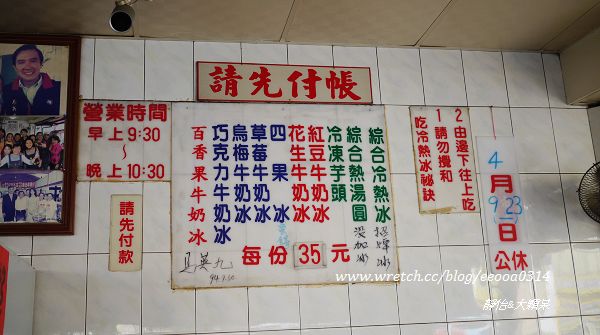 請先付帳
營業時間
早上9:30
~
晚上10:30
請先付款
綜合冷熱冰
招牌冰
綜合熱湯圓
沒加冰
冷凍芋頭
紅豆牛奶冰
花生牛奶冰
四果冰
草莓牛奶冰
烏梅牛奶冰
巧克力牛奶冰
百香果牛奶冰
每份35元
馬英九
吃冷熱冰祕訣
1請勿攪和
2由邊下往上吃
4月
9、23日
公休
www.wretch.cc/blog/eeooa0314
靜怡&大顆呆